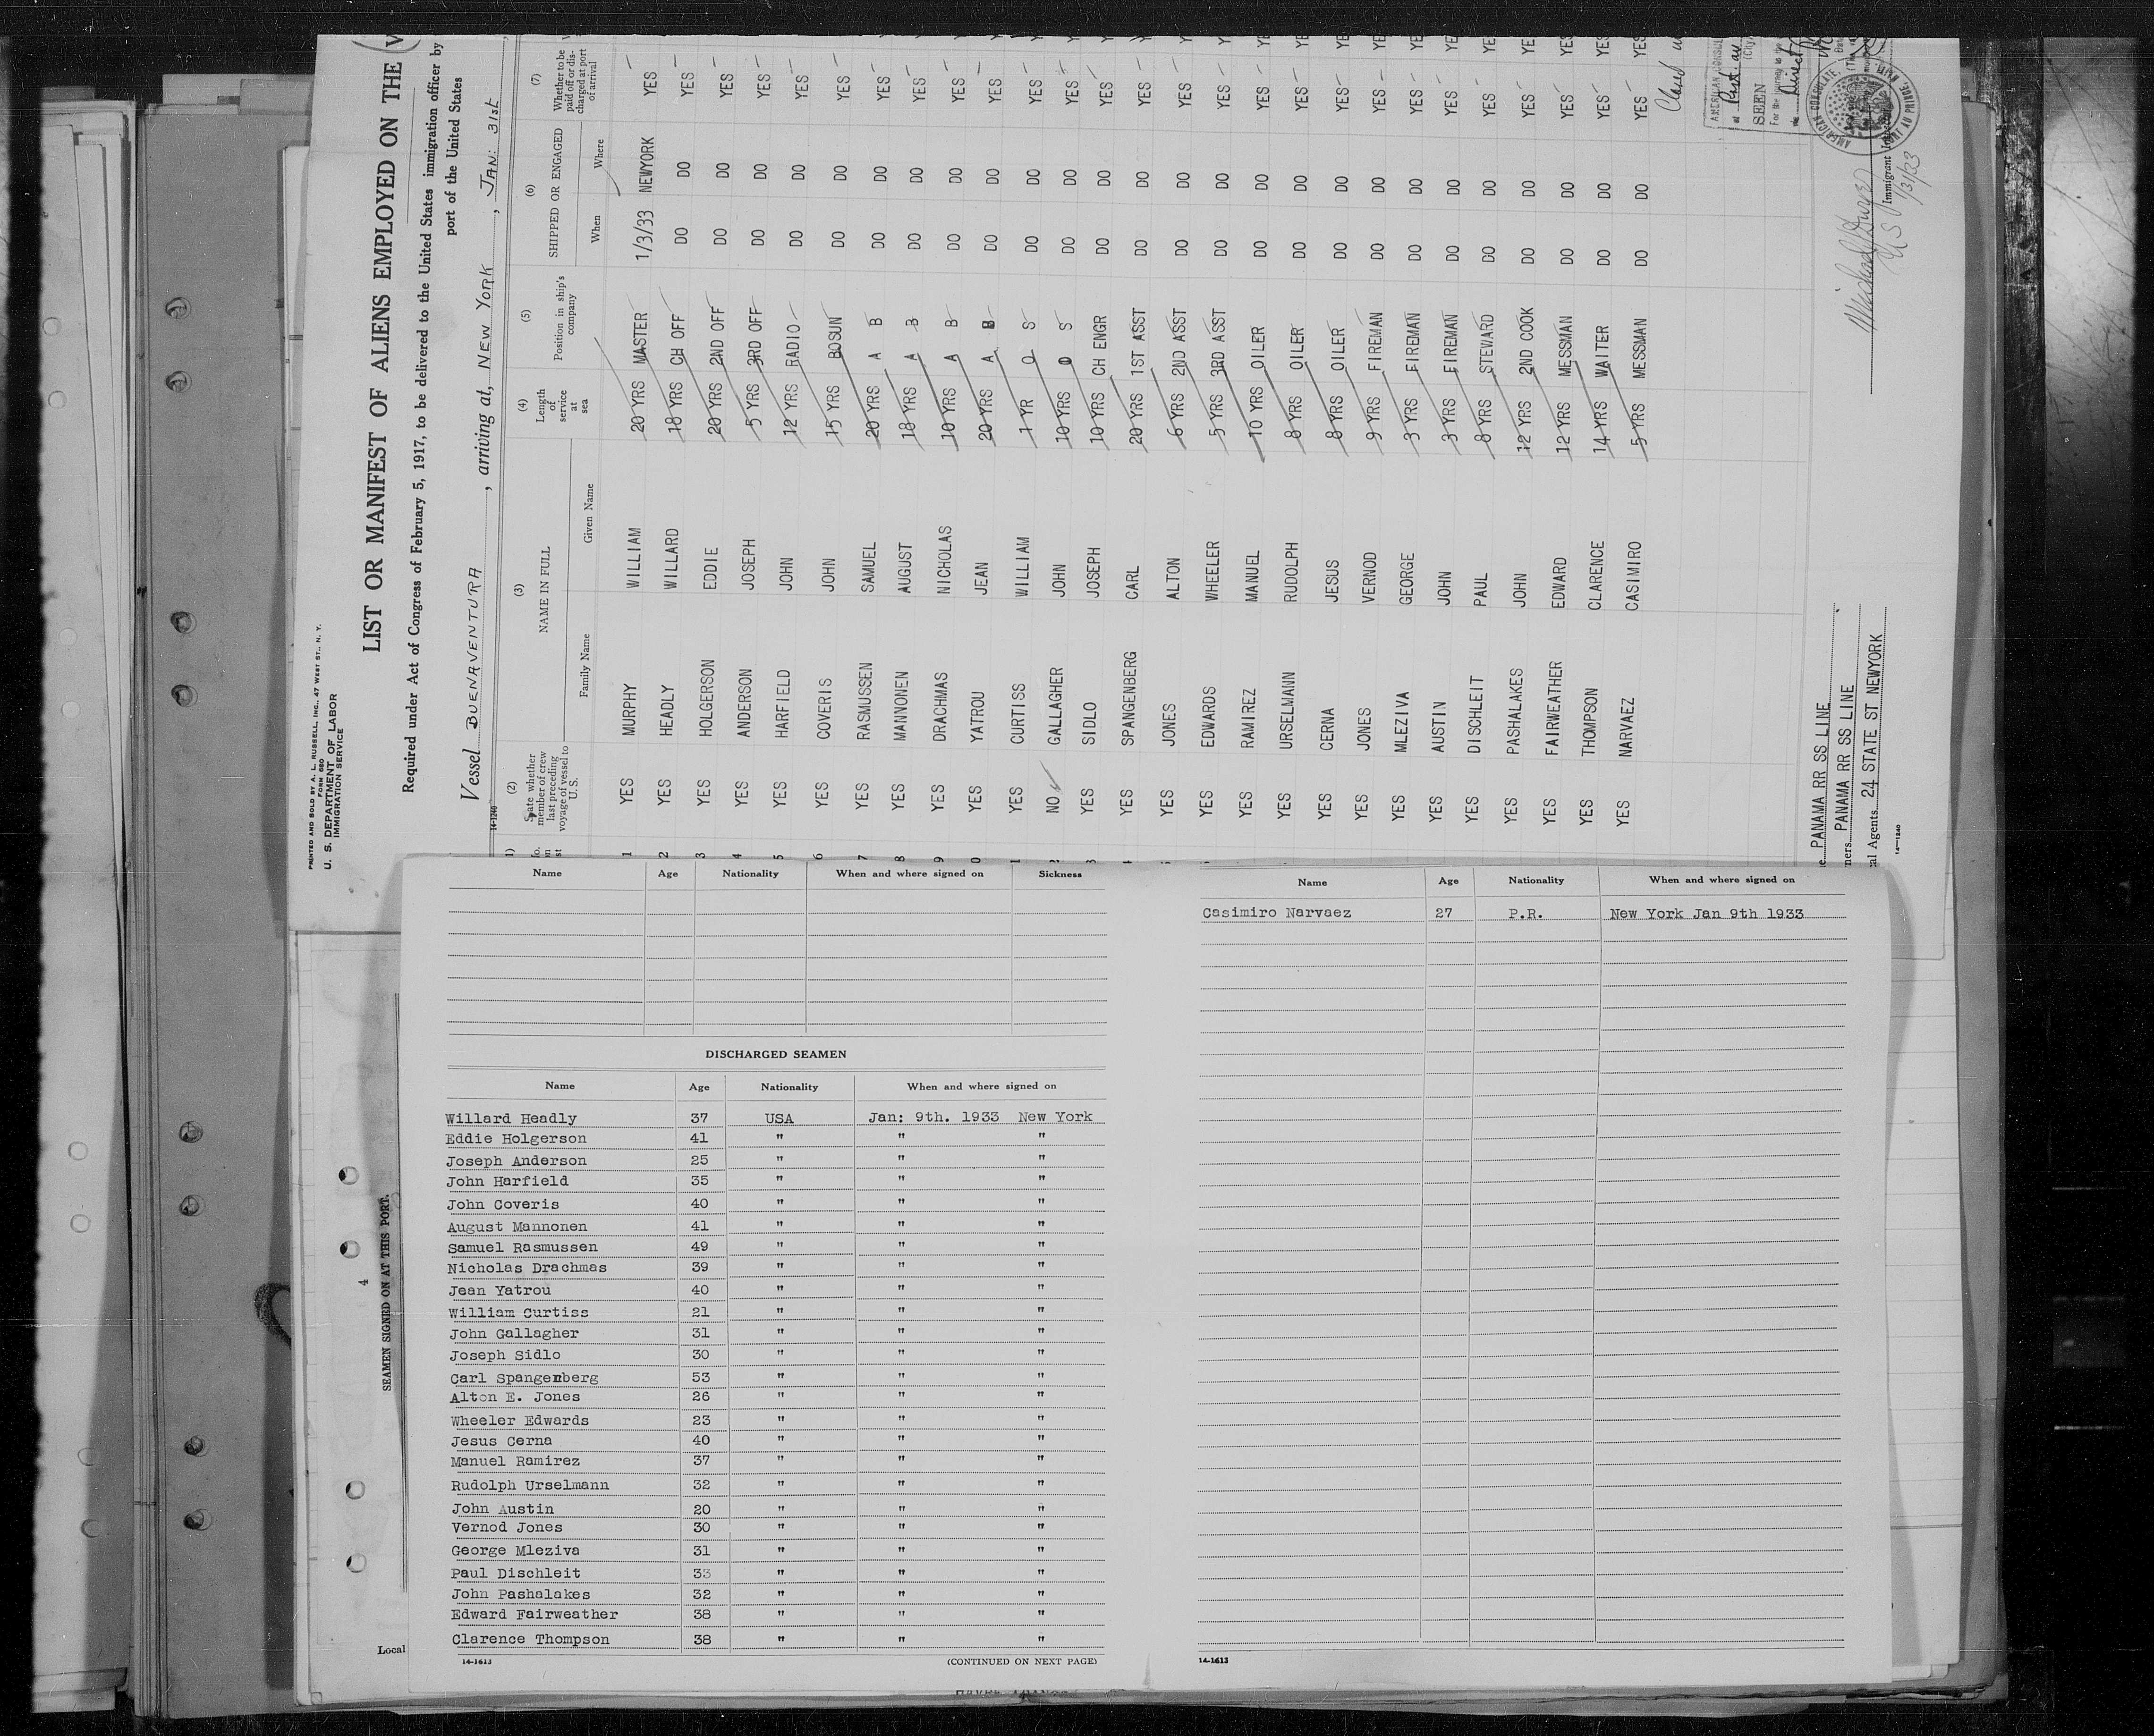 PRINTED AND SOLD BY A. L. RUSSELL, INC., 47 WEST ST., N. Y.
FORM 680
U. S. DEPARTMENT OF LABOR
IMMIGRATION SERVICE
LIST OR MANIFEST OF ALIENS EMPLOYED ON THE
Required under Act of Congress of February 5, 1917, to be delivered to the United States immigration officer by
port of the United States
Vessel BUENAVENTURA, arriving at, NEW YORK, JAN: 31st
14-1240
(2) (3) (4) (5) (6) (7)
State whether member of crew last preceding voyage of vessel to U.S. NAME IN FULL Length of service at sea Position in ship's company SHIPPED OR ENGAGED Whether to be paid off or discharged at port of arrival
Family Name Given Name When Where
1 YES MURPHY WILLIAM 20 YRS MASTER 1/3/33 NEWYORK YES
2 YES HEADLY WILLARD 18 YRS CH OFF DO DO YES
3 YES HOLGERSON EDDIE 20 YRS 2ND OFF DO DO YES
4 YES ANDERSON JOSEPH 5 YRS 3RD OFF DO DO YES
5 YES HARFIELD JOHN 12 YRS RADIO DO DO YES
6 YES COVERIS JOHN 15 YRS BOSUN DO DO YES
7 YES RASMUSSEN SAMUEL 20 YRS A B DO DO YES
8 YES MANNONEN AUGUST 18 YRS A B DO DO YES
9 YES DRACHMAS NICHOLAS 10 YRS A B DO DO YES
0 YES YATROU JEAN 20 YRS A B DO DO YES
1 YES CURTISS WILLIAM 1 YR O S DO DO YES
2 NO GALLAGHER JOHN 10 YRS O S DO DO YES
3 YES SIDLO JOSEPH 10 YRS CH ENGR DO DO YES
YES SPANGENBERG CARL 20 YRS 1ST ASST DO DO YES
YES JONES ALTON 6 YRS 2ND ASST DO DO YES
YES EDWARDS WHEELER 5 YRS 3RD ASST DO DO YES
YES RAMIREZ MANUEL 10 YRS OILER DO DO YES
YES URSELMANN RUDOLPH 8 YRS OILER DO DO YES
YES CERNA JESUS 8 YRS OILER DO DO YES
YES JONES VERNOD 9 YRS FIREMAN DO DO YES
YES MLEZIVA GEORGE 3 YRS FIREMAN DO DO YES
YES AUSTIN JOHN 3 YRS FIREMAN DO DO YES
YES DISCHLEIT PAUL 8 YRS STEWARD DO DO YES
YES PASHALAKES JOHN 12 YRS 2ND COOK DO DO YES
YES FAIRWEATHER EDWARD 12 YRS MESSMAN DO DO YES
YES THOMPSON CLARENCE 14 YRS WAITER DO DO YES
YES NARVAEZ CASIMIRO 5 YRS MESSMAN DO DO YES
SEEN
AMERICAN CONSULATE, PORT AU PRINCE, HAITI
PANAMA RR SS LINE
PANAMA RR SS LINE
al Agents 24 STATE ST NEWYORK
14-1240
Immigrant Inspector
1/31/33
Name Age Nationality When and where signed on Sickness
DISCHARGED SEAMEN
Name Age Nationality When and where signed on
Willard Headly 37 USA Jan: 9th. 1933 New York
Eddie Holgerson 41 " " "
Joseph Anderson 25 " " "
John Harfield 35 " " "
John Coveris 40 " " "
August Mannonen 41 " " "
Samuel Rasmussen 49 " " "
Nicholas Drachmas 39 " " "
Jean Yatrou 40 " " "
William Curtiss 21 " " "
John Gallagher 31 " " "
Joseph Sidlo 30 " " "
Carl Spangenberg 53 " " "
Alton E. Jones 26 " " "
Wheeler Edwards 23 " " "
Jesus Cerna 40 " " "
Manuel Ramirez 37 " " "
Rudolph Urselmann 32 " " "
John Austin 20 " " "
Vernod Jones 30 " " "
George Mleziva 31 " " "
Paul Dischleit 33 " " "
John Pashalakes 32 " " "
Edward Fairweather 38 " " "
Clarence Thompson 38 " " "
14-1613
(CONTINUED ON NEXT PAGE)
Name Age Nationality When and where signed on
Casimiro Narvaez 27 P.R. New York Jan 9th 1933
14-1613
4
SEAMEN SIGNED ON AT THIS PORT.
Local